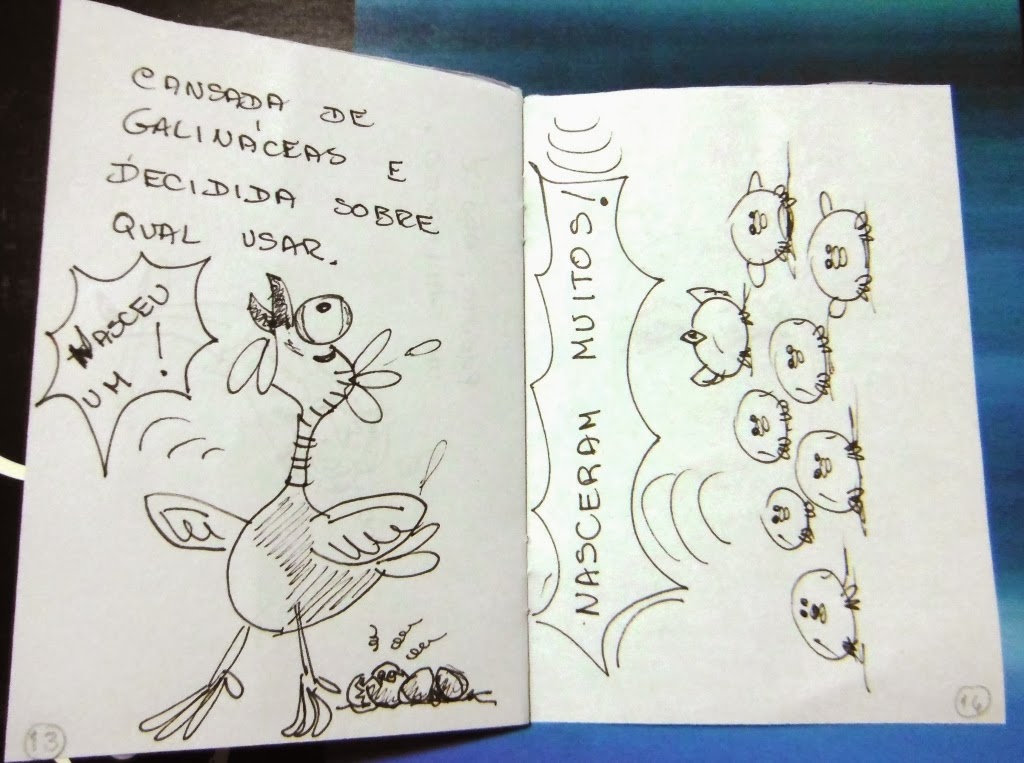 CANSADA DE
GALINÁCEAS E
DECIDIDA SOBRE
QUAL USAR.
NASCEU
UM!
13
NASCERAM MUITOS!
14